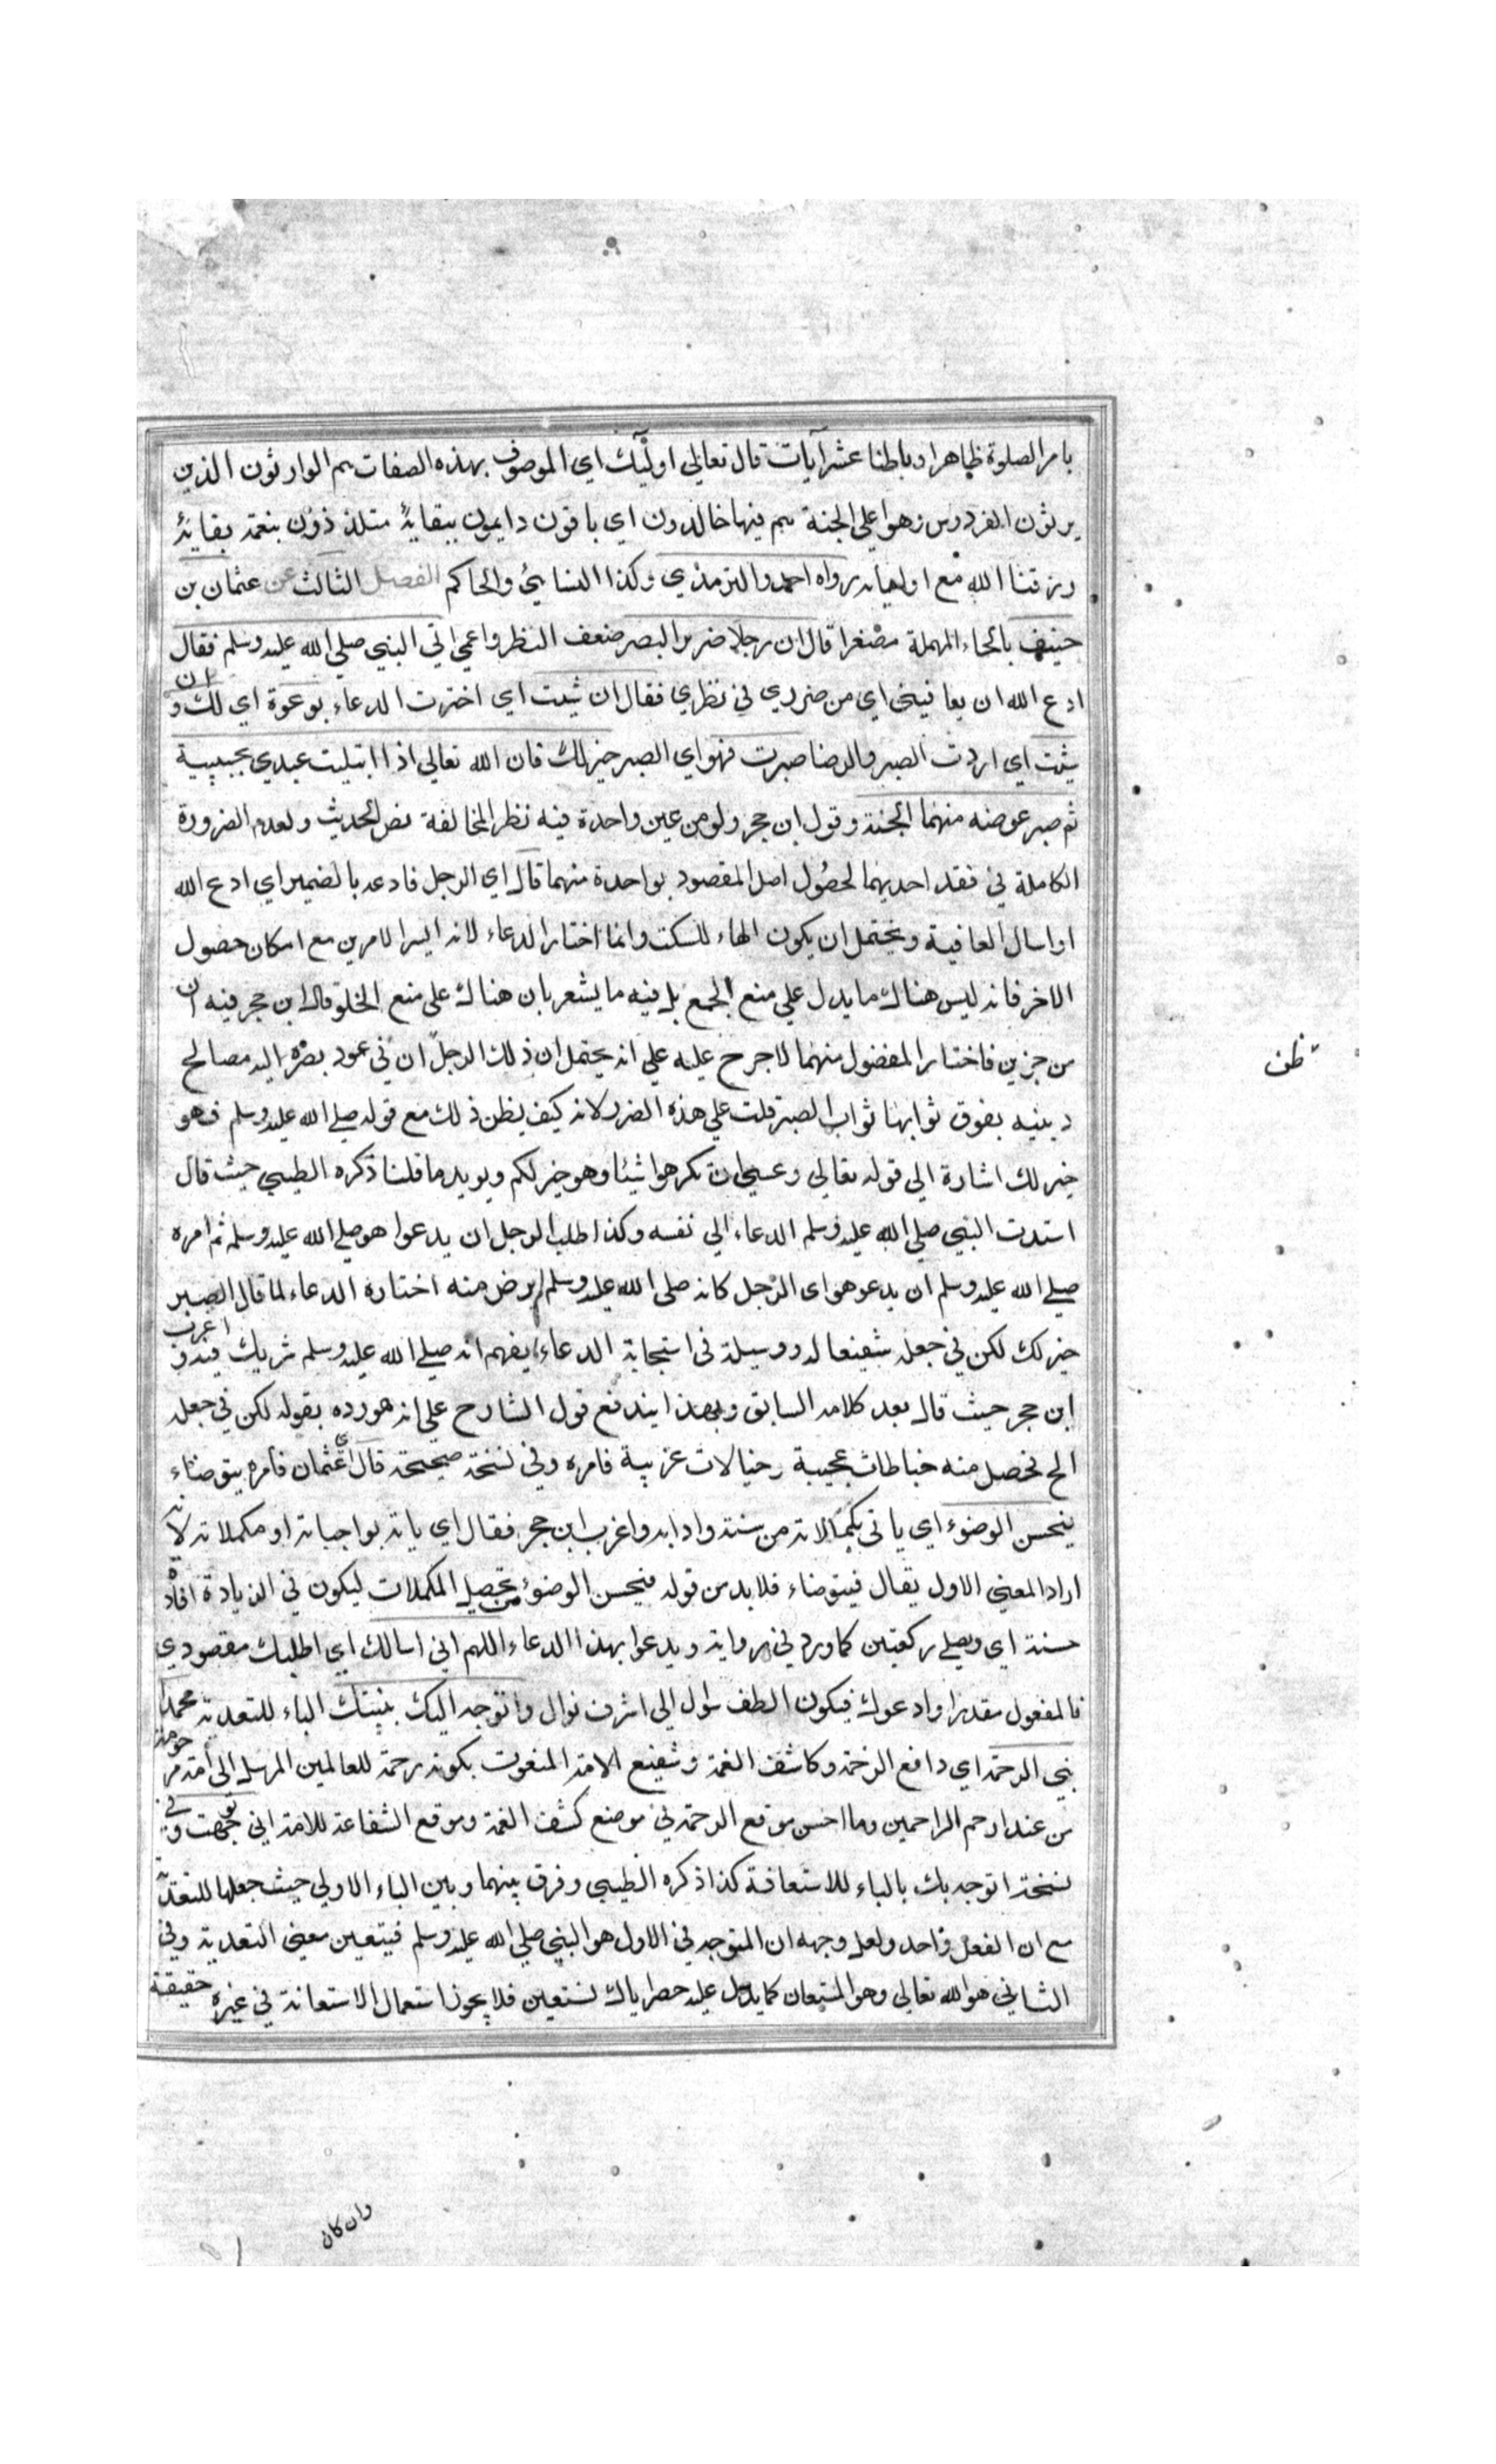 بامر الصلوة ظاهرا وباطنا عشر آيات قال تعالي اولئك اي الموصوف بهذه الصفات هم الوارثون الذين
يرثون الفردوس وهوا علي الجنة هم فيها خالدون اي باقون دايمون ببقايه متلذذون بنعمة بقايه
رزقنا الله مع اوليايه رواه احمد والترمذي وكذا النسايئ والحاكم الفصل الثالث عن عثمان بن
حنيف بالحاء المهملة مصغرا قال ان رجلا ضرير البصر ضعف النظر واعمي اتي النبي صلي الله عليه وسلم فقال
ادع الله ان يعافيني اي من ضرري في نظري فقال ان شيت اي اخترت الدعاء دعوة اي لك و ان
شيت اي اردت الصبر والرضا صبرت فهو اي الصبر خير لك فان الله تعالي اذا ابتليت عبدي بحبيبيه
ثم صبر عوضنه منهما الجنة وقول ابن حجر ولو من عين واحدة فيه نظر المخالفة نص الحديث ولعدم الضرورة
الكاملة في فقد احديهما لحصول اصل المقصود بواحدة منهما قال اي الرجل فادعه بالضمير اي ادع الله
او اسال العافية ويحتمل ان يكون الهاء للسكت وانما اختار الدعاء لانه ايسر الامرين مع امكان حصول
الاخر فانه ليس هناك ما يدل علي منع الجمع بل فيه ما يشعر بان هناك علي منع الخلو قال ابن حجر فيه ان
من خيرين فاختار المفضول منهما لا حرج عليه علي انه يحتمل ان ذلك الرجل ان في عود بصره اليه مصالح
ظن
دينيه يفوق ثوابها ثواب الصبر قلت علي هذه الضرر لانه كيف يظن ذلك مع قوله صلي الله عليه وسلم فهو
خير لك اشارة الي قوله تعالي وعسي ان تكرهوا شيئا وهو خير لكم ويويد ما قلنا ذكره الطيبي حيث قال
اسندت النبي صلي الله عليه وسلم الدعاء الي نفسه وكذا طلب الرجل ان يدعوا هو صلي الله عليه وسلم ثم امره
صلي الله عليه وسلم ان يدعو هو اي الرجل كانه صلي الله عليه وسلم لم يرض منه اختاره الدعاء لما قال الصبر
خير لك لكن في جعله شفيعا له ووسيلة في استجابة الدعاء يفهم انه صلي الله عليه وسلم شريك فيه و اغرب
ابن حجر حيث قال بعد كلامه السابق وبهذا يندفع قول الشارح علي انه هو رده بقوله لكن في جعله
الخ فحصل منه خباطات عجيبة وخيالات غريبة فامره وفي نسخة صحيحة قال اي عثمان فامره يتوضاء
فيحسن الوضوء اي ياتي بكمالاته من سننه وادابه واغرب ابن حجر فقال اي ياته بواجباته او مكملاته لانه
اراد المعني الاول يقال فيتوضاء فلا بد من قوله فيحسن الوضوء من تحصيل المكملات ليكون في الزيادة افادة
حسنة اي ويصلي ركعتين كما ورد في رواية ويدعوا بهذا الدعاء اللهم اني اسالك اي اطلبك مقصودي
فالمفعول مقدر او ادعوك فيكون الطف سول الي اشرف نوال واتوجه اليك بنبيك الباء للتعدية محمد
نبي الرحمة اي دافع الزحمة وكاشف الغمة وشفيع الامة المنعوت بكونه رحمة للعالمين المرسل الي امة مرحومة
من عند ارحم الراحمين وما احسن موقع الرحمة في موضع كشف الغمة وموقع الشفاعة للامة اني توجهت و في
نسخة اتوجه بك بالباء للاستعانة كذا ذكره الطيبي وفرق بينهما وبين الباء الاولي حيث جعلها للتعدية
مع ان الفعل واحد ولعل وجهه ان المتوجه في الاول هو النبي صلي الله عليه وسلم فيتعين معني التعدية وفي
الثاني هو الله تعالي وهو المستعان كما يدل عليه حصر اياك نستعين فلا يجوز استعمال الاستعانة في غيره حقيقة
وان كان